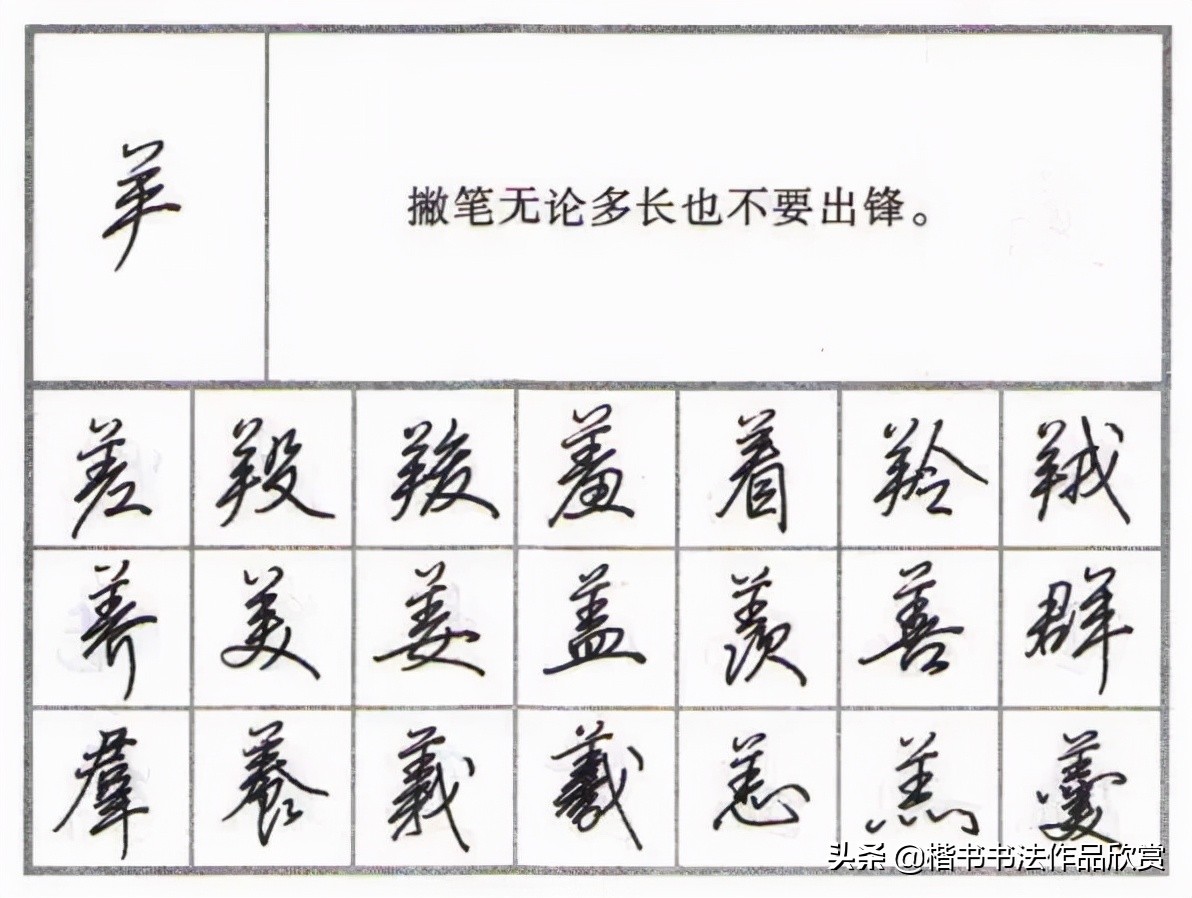 羊
撇笔无论多长也不要出锋。
差 羖 羧 羞 着 羚 羢
养 美 姜 盖 羡 善 群
羣 養 義 羲 恙 羔 羹
头条 @楷书书法作品欣赏